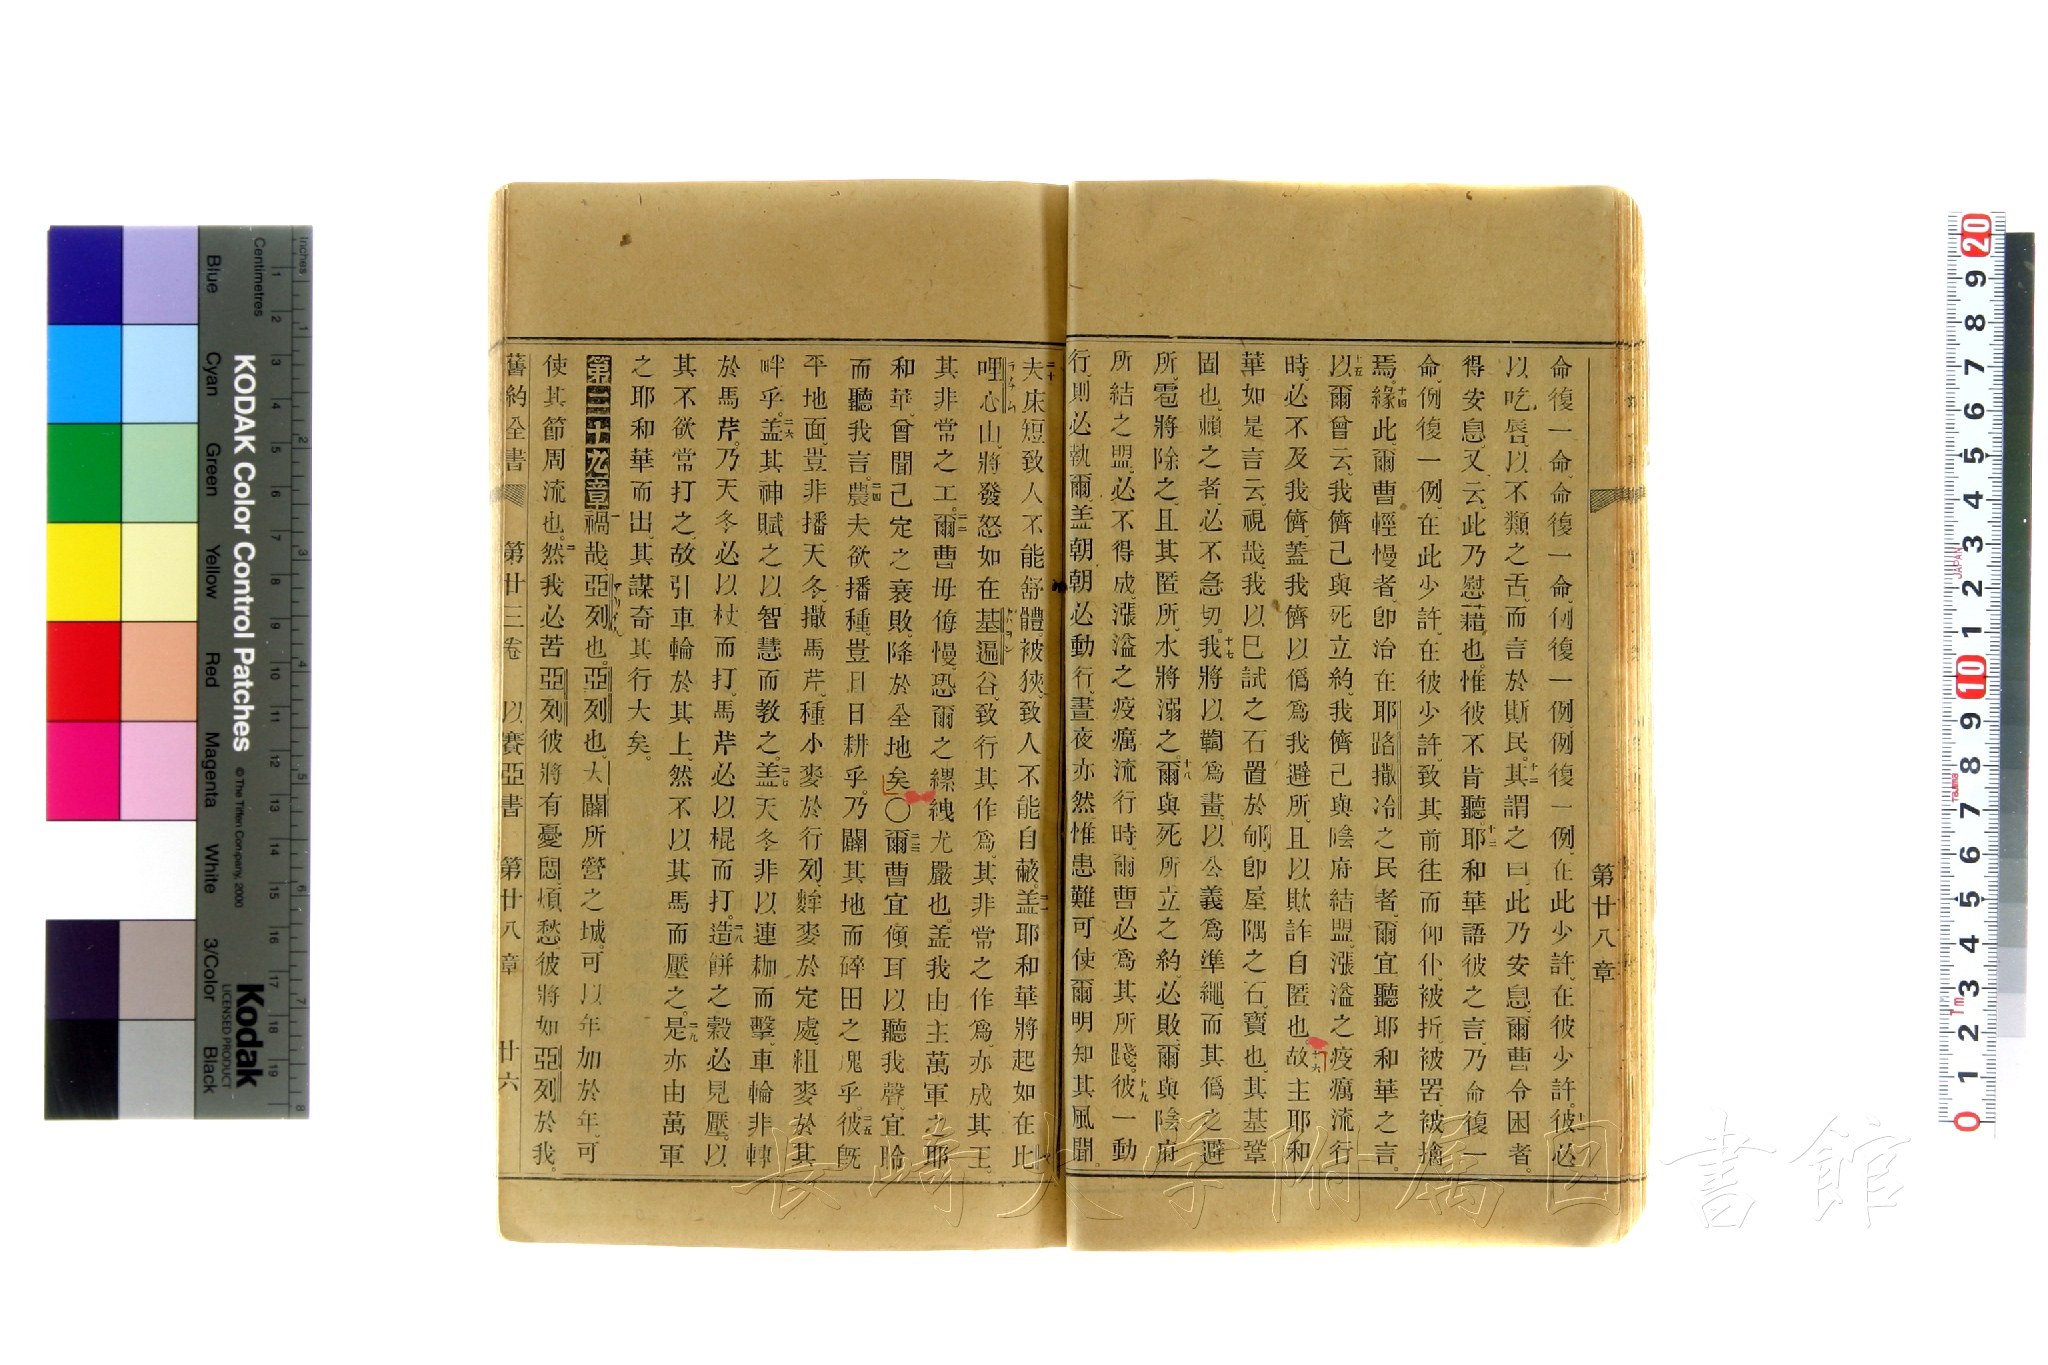 第廿八章
命復一命、命復一命、例復一例、例復一例、在此少許、在彼少許。十一彼必
以吃唇、以不類之舌、而言於斯民。十二其謂之曰、此乃安息、爾曹令困者。
得安息、又云、此乃慰藉也。惟彼不肯聽。十三耶和華語彼之言、乃命復一
命、例復一例、在此少許、在彼少許、致其前往而仰仆、被折、被罟、被擒
焉。十四緣此、爾曹輕慢者、即治在耶路撒冷之民者、爾宜聽耶和華之言。
十五以爾曾云、我儕已與死立約、我儕己與陰府結盟、漲溢之疫癘流行
時、必不及我儕、蓋我儕以僞爲我避所、且以欺詐自匿也。十六故主耶和
華如是言云、視哉、我以已試之石置於郇、即屋隅之石、寶也、其基鞏
固也、賴之者、必不急切。十七我將以鞫爲畫、以公義爲準繩、而其僞之避
所、雹將除之、且其匿所、水將溺之。十八爾與死所立之約、必敗、爾與陰府
所結之盟、必不得成、漲溢之疫癘流行時、爾曹必爲其所踐。十九彼一動
行、則必執爾、蓋朝朝必動行、晝夜亦然、惟患難可使爾明知其風聞。
二十夫床短、致人不能舒體、被狹、致人不能自蔽。蓋耶和華將起如在比
哩心山、將發怒如在基遍谷、致行其作爲、其非常之作爲、亦成其工、
其非常之工。二二爾曹毋侮慢、恐爾之縲絏尤嚴也。蓋我由主萬軍之耶
和華、曾聞己定之衰敗、降於全地矣。〇二三爾曹宜傾耳以聽我聲、宜聆
而聽我言。二四農夫欲播種、豈日日耕乎。乃闢其地而碎田之塊乎。二五彼既
平地面、豈非播天冬、撒馬芹、種小麥於行列、麰麥於定處、粗麥於其
畔乎。二六蓋其神賦之以智慧而教之。二七蓋天冬非以連枷而擊、車輪非轉
於馬芹。乃天冬必以杖而打、馬芹必以棍而打。二八造餅之穀必見壓。以
其不欲常打之、故引車輪於其上、然不以其馬而壓之。二九是亦由萬軍
之耶和華而出、其謀奇其行大矣。
第二十九章一禍哉、亞列也。亞列也、大闢所營之城、可以年加於年、可
使其節周流也。二然我必苦亞列、彼將有憂悶煩愁、彼將如亞列於我。
舊約全書　第廿三卷　以賽亞書　第廿八章　廿六
長崎大学附属図書館
KODAK Color Control Patches
© The Tiffen Company, 2000
Kodak
LICENSED PRODUCT
Inches
Centimetres
Blue
Cyan
Green
Yellow
Red
Magenta
White
3/Color
Black